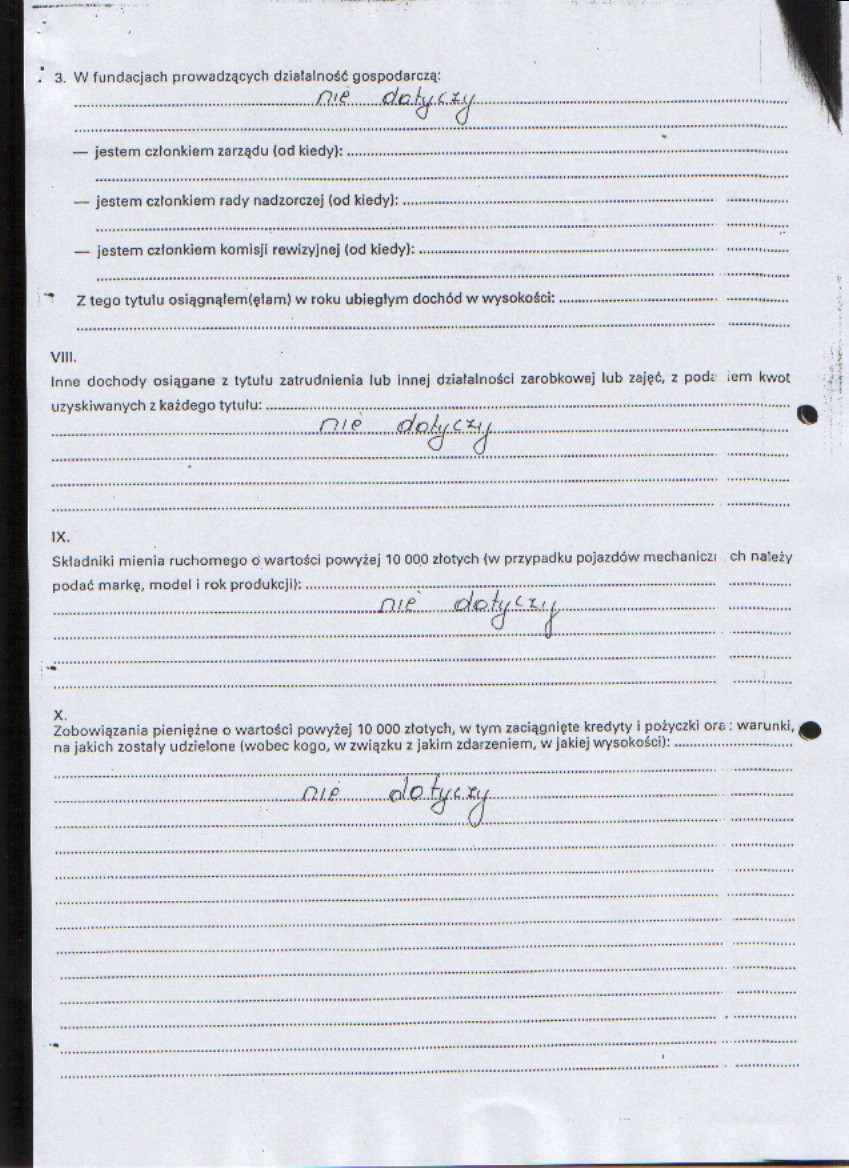 3. W fundacjach prowadzących działalność gospodarczą:
nie dotyczy
— jestem członkiem zarządu (od kiedy):
— jestem członkiem rady nadzorczej (od kiedy):
— jestem członkiem komisji rewizyjnej (od kiedy):
Z tego tytułu osiągnąłem(ęłam) w roku ubiegłym dochód w wysokości:
VIII.
Inne dochody osiągane z tytułu zatrudnienia lub innej działalności zarobkowej lub zajęć, z poda iem kwot
uzyskiwanych z każdego tytułu:
nie dotyczy
IX.
Składniki mienia ruchomego o wartości powyżej 10 000 złotych (w przypadku pojazdów mechanicz ch należy
podać markę, model i rok produkcji):
nie dotyczy
X.
Zobowiązania pieniężne o wartości powyżej 10 000 złotych, w tym zaciągnięte kredyty i pożyczki ora: warunki,
na jakich zostały udzielone (wobec kogo, w związku z jakim zdarzeniem, w jakiej wysokości):
nie dotyczy